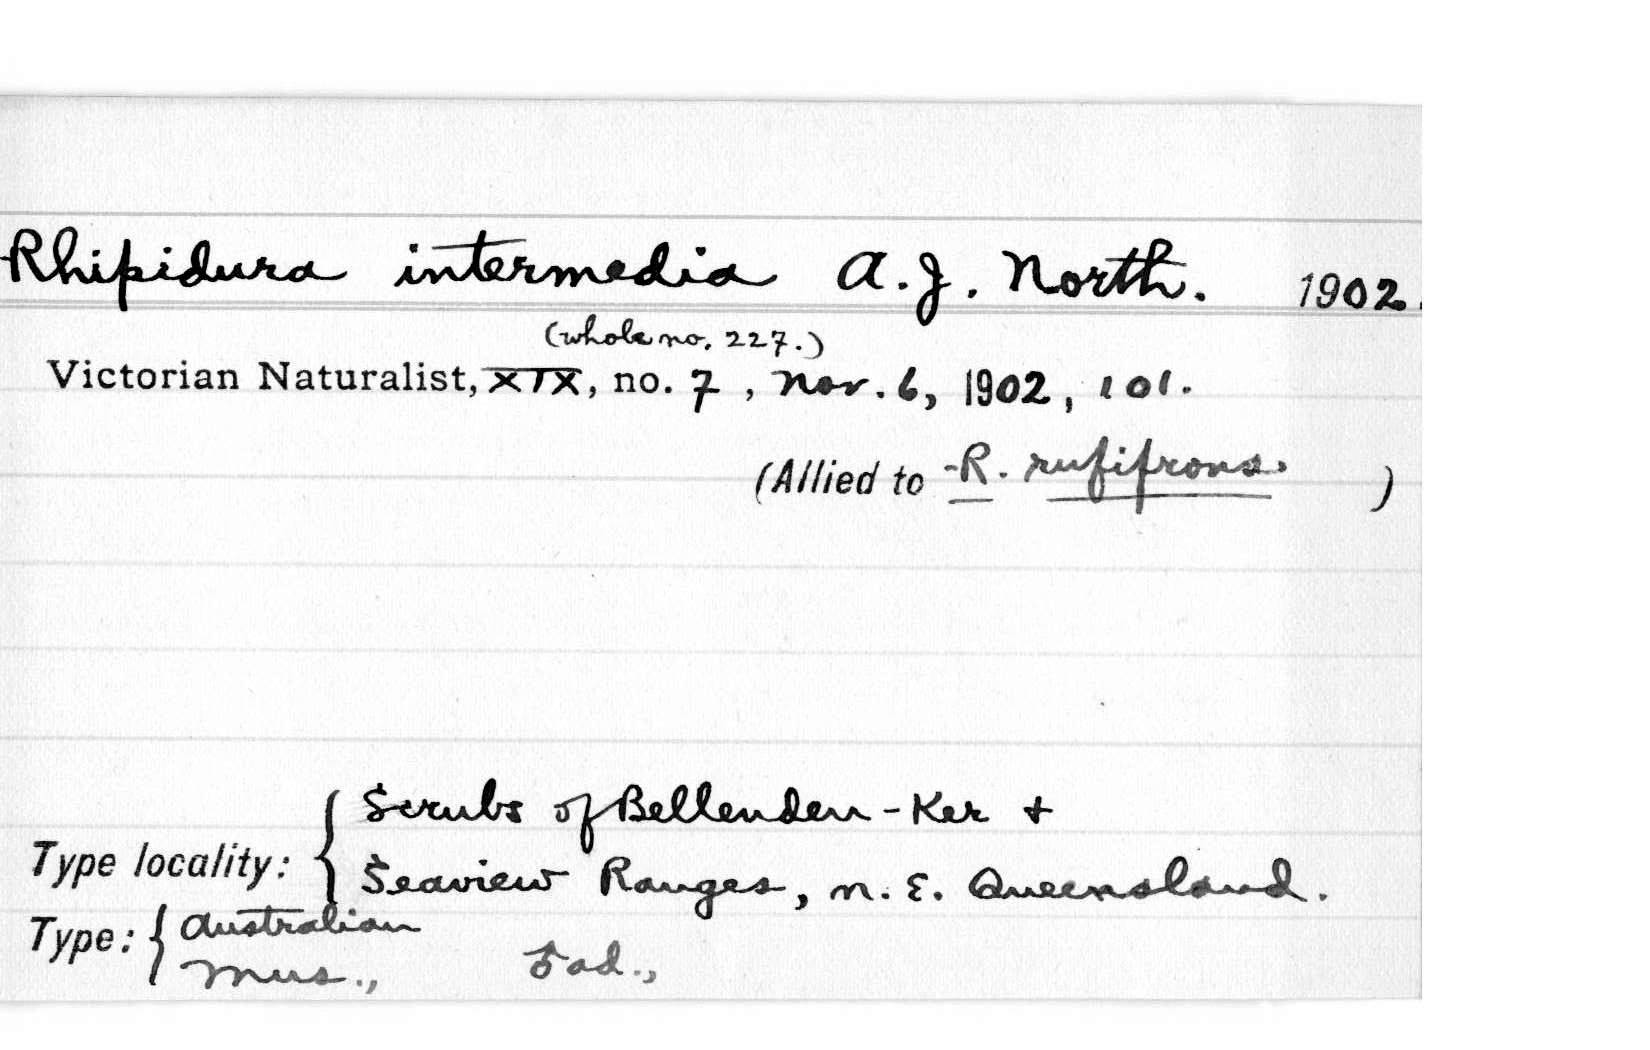 Rhipidura intermedia A.J. North. 1902.
(whole no. 227.)
Victorian Naturalist, XIX, no. 7, Nov. 6, 1902, 101.
(Allied to R. rufifrons. )
Type locality: { Scrubs of Bellenden-Ker +
Seaview Ranges, N.E. Queensland.
Type: { Australian
Mus., ad.,